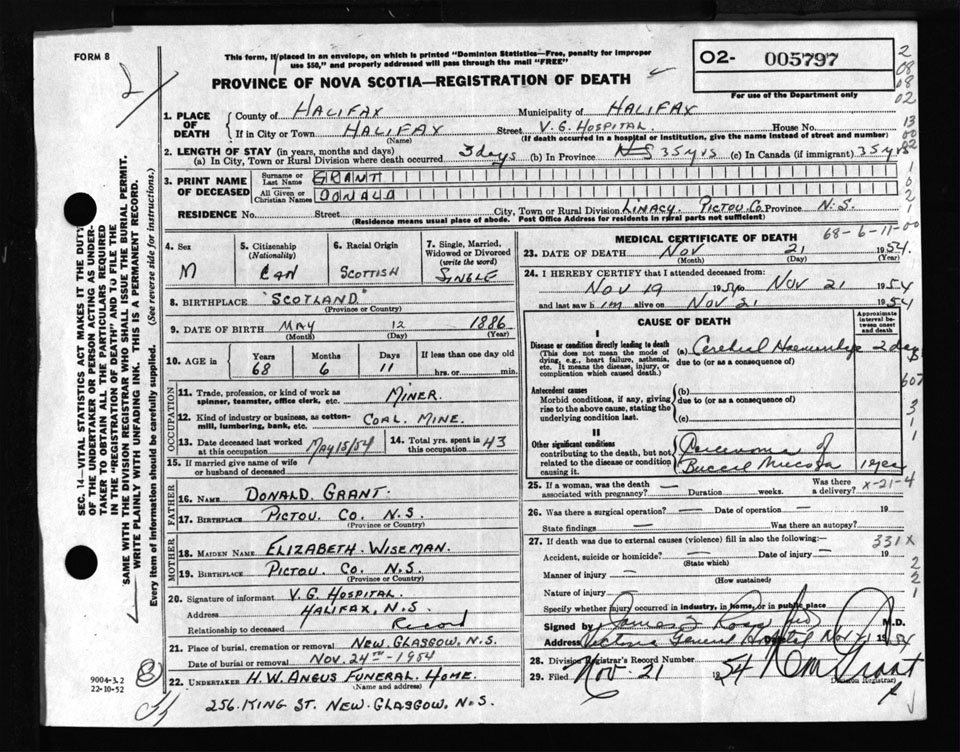 FORM 8
This form, if placed in an envelope, on which is printed "Dominion Statistics—Free, penalty for improper
use $50," and properly addressed will pass through the mail "FREE"
PROVINCE OF NOVA SCOTIA—REGISTRATION OF DEATH
02- 005797
For use of the Department only
2
08
08
02
13
00
82
1
0
2
1
2
SEC. 14—VITAL STATISTICS ACT MAKES IT THE DUTY
OF THE UNDERTAKER OR PERSON ACTING AS UNDER-
TAKER TO OBTAIN ALL THE PARTICULARS REQUIRED
IN THE "REGISTRATION OF DEATH" AND TO FILE THE
SAME WITH THE DIVISION REGISTRAR WHO SHALL ISSUE THE BURIAL PERMIT.
WRITE PLAINLY WITH UNFADING INK. THIS IS A PERMANENT RECORD.
Every item of information should be carefully supplied. (See reverse side for instructions.)
1. PLACE OF DEATH
County of HALIFAX Municipality of HALIFAX
If in City or Town HALIFAX Street V.G. HOSPITAL House No.
(Name) (If death occurred in a hospital or institution, give the name instead of street and number)
2. LENGTH OF STAY (in years, months and days)
(a) In City, Town or Rural Division where death occurred 3 days (b) In Province NS 35 yrs (c) In Canada (if immigrant) 35 yrs
3. PRINT NAME OF DECEASED
Surname or Last Name GRANT
All Given or Christian Names DONALD
RESIDENCE No. Street City, Town or Rural Division LINACY. PICTOU CO. Province N.S.
(Residence means usual place of abode. Post Office Address for residents in rural parts not sufficient)
4. Sex
M
5. Citizenship (Nationality)
CAN
6. Racial Origin
SCOTTISH
7. Single, Married, Widowed or Divorced (write the word)
SINGLE
8. BIRTHPLACE "SCOTLAND"
(Province or Country)
9. DATE OF BIRTH MAY 12 1886
(Month) (Day) (Year)
10. AGE in Years Months Days If less than one day old
68 6 11 hrs. or min.
OCCUPATION
11. Trade, profession, or kind of work as
spinner, teamster, office clerk, etc. MINER.
12. Kind of industry or business, as cotton-
mill, lumbering, bank, etc. COAL MINE.
13. Date deceased last worked at this occupation MAY 15/54
14. Total yrs. spent in this occupation 43
15. If married give name of wife
or husband of deceased
FATHER
16. NAME DONALD GRANT.
17. BIRTHPLACE PICTOU. CO. N.S.
(Province or Country)
MOTHER
18. MAIDEN NAME ELIZABETH. WISEMAN.
19. BIRTHPLACE PICTOU. CO. N.S.
(Province or Country)
20. Signature of informant V.G. HOSPITAL.
Address HALIFAX, N.S.
Relationship to deceased Record
21. Place of burial, cremation or removal NEW. GLASGOW. N.S.
Date of burial or removal NOV. 24TH-1954
22. UNDERTAKER H.W. ANGUS FUNERAL. HOME.
(Name and address)
256. KING ST. NEW. GLASGOW. N.S.
9004-3.2
22-10-52
8
68-6-11-00
MEDICAL CERTIFICATE OF DEATH
23. DATE OF DEATH Nov 21 1954.
(Month) (Day) (Year)
24. I HEREBY CERTIFY that I attended deceased from
Nov 19 1954 to Nov 21 1954
and last saw him alive on Nov 21 1954
CAUSE OF DEATH
Approximate interval between onset and death
I
Disease or condition directly leading to death
(This does not mean the mode of
dying, e.g., heart failure, asthenia,
etc. It means the disease, injury, or
complication which caused death.)
(a) Cerebral Haemorrhage 2 days
due to (or as a consequence of)
Antecedent causes
Morbid conditions, if any, giving
rise to the above cause, stating the
underlying condition last.
(b)
due to (or as a consequence of)
(c)
II
Other significant conditions
contributing to the death, but not
related to the disease or condition
causing it.
Carcinoma of
Buccal Mucosa 1 year
607
3
1
1
25. If a woman, was the death
associated with pregnancy? — Duration weeks. Was there a delivery?
X-21-4
26. Was there a surgical operation? — Date of operation — 19
State findings — Was there an autopsy?
27. If death was due to external causes (violence) fill in also the following:—
331X
Accident, suicide or homicide? — Date of injury — 19
(State which)
Manner of injury —
(How sustained)
Nature of injury
Specify whether injury occurred in industry, in home, or in public place
2
2
1
Signed by James Ross M.D.
Address Victoria General Hospital Nov 21 1954
28. Division Registrar's Record Number
29. Filed Nov. 21 1954
Division Registrar